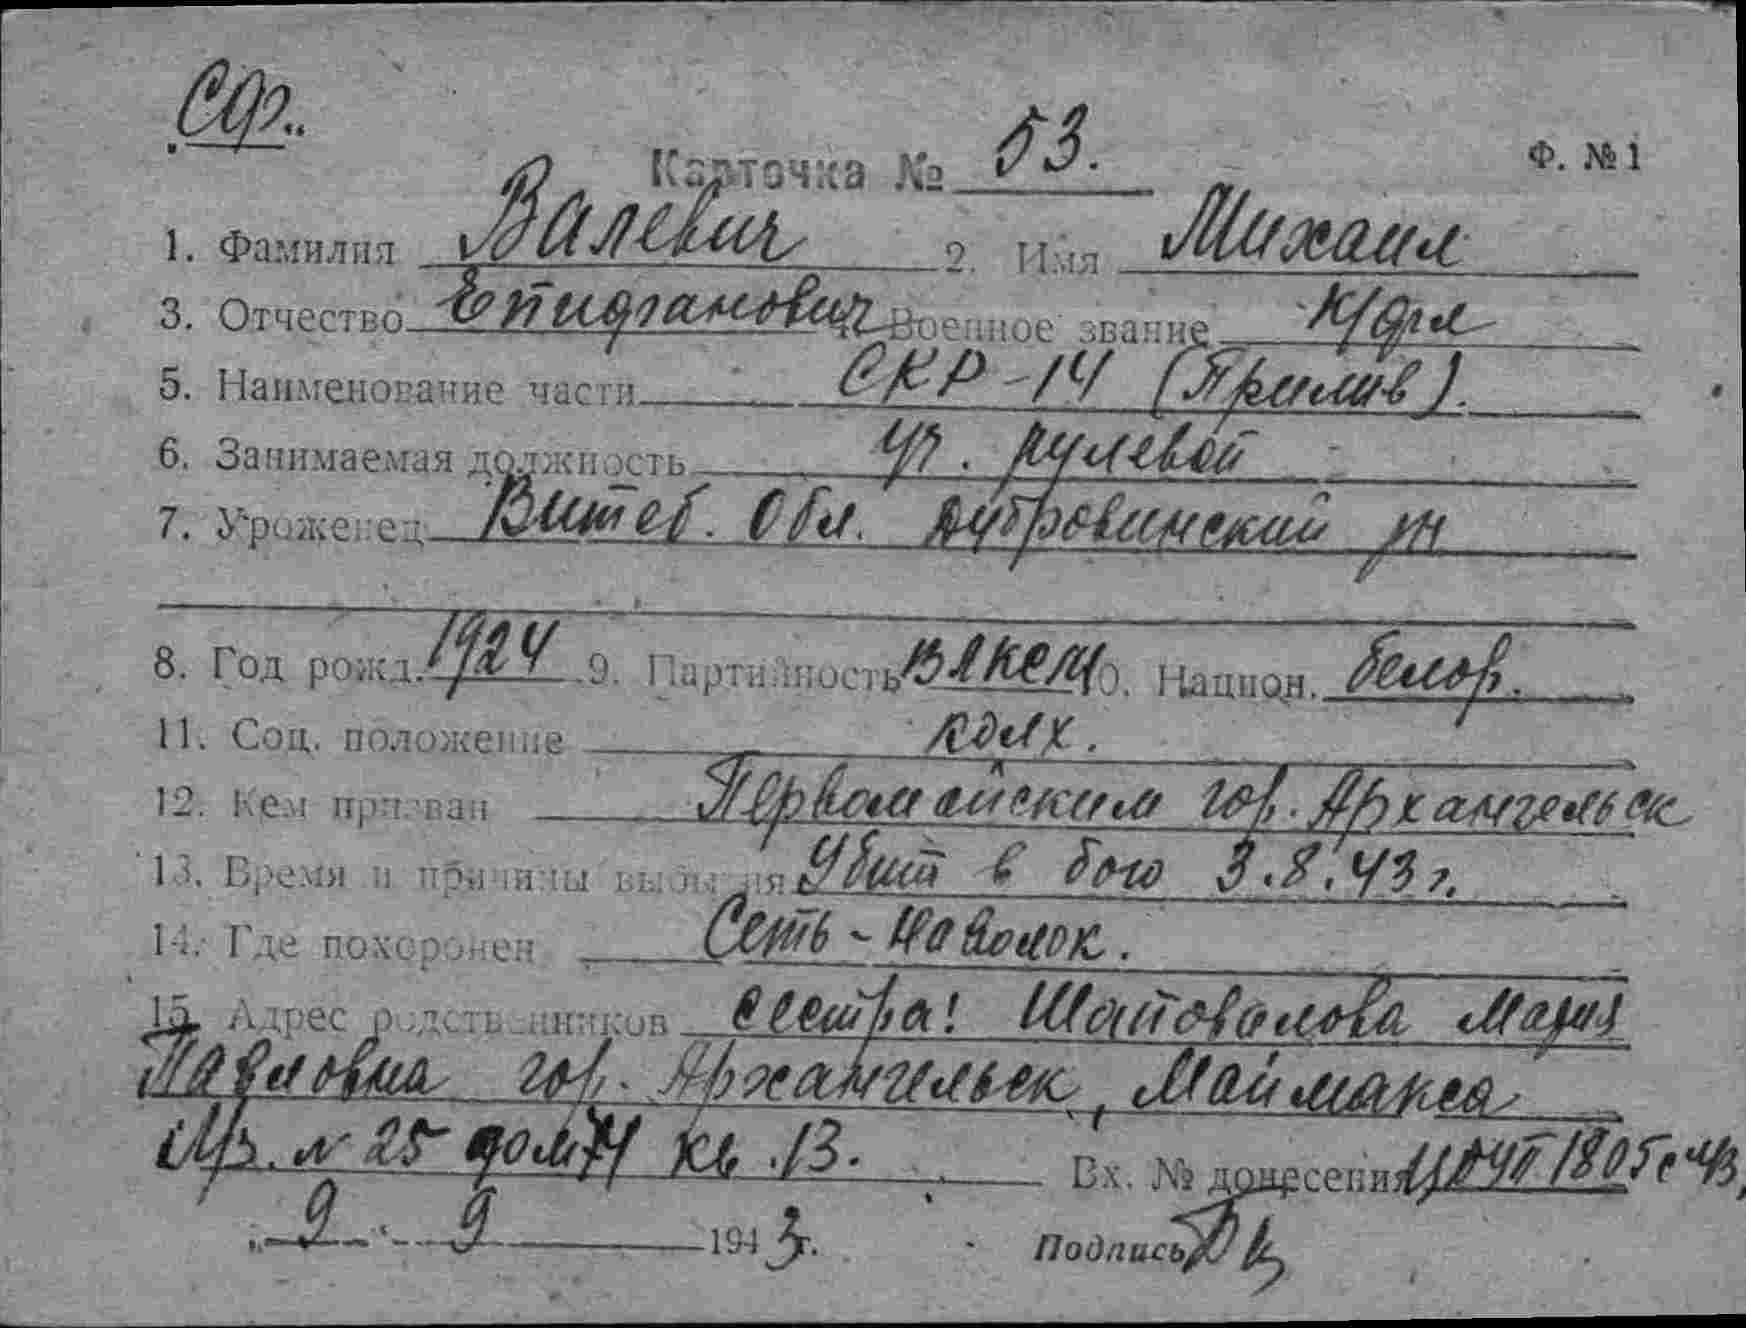 СФ..
Карточка № 53. Ф. №1
1. Фамилия Валевич 2. Имя Михаил
3. Отчество Епифанович 4. Военное звание к/фл
5. Наименование части СКР-14 (Прилив).
6. Занимаемая должность уч. рулевой
7. Уроженец Витеб. Обл. Дубровинский рн
8. Год рожд. 1924 9. Партийность ВЛКСМ 10. Национ. белор.
11. Соц. положение колх.
12. Кем призван Первомайским гор. Архангельск
13. Время и причины выбытия Убит в бою 3.8.43 г.
14. Где похоронен Сеть-Наволок.
15. Адрес родственников сестра! Шаповалова Мария
Павловна гор. Архангельск, Маймакса
л/з. № 25 дом 71 кв. 13. Вх. № донесения 1805с 43,
„ 9 " 9 1943г. Подпись